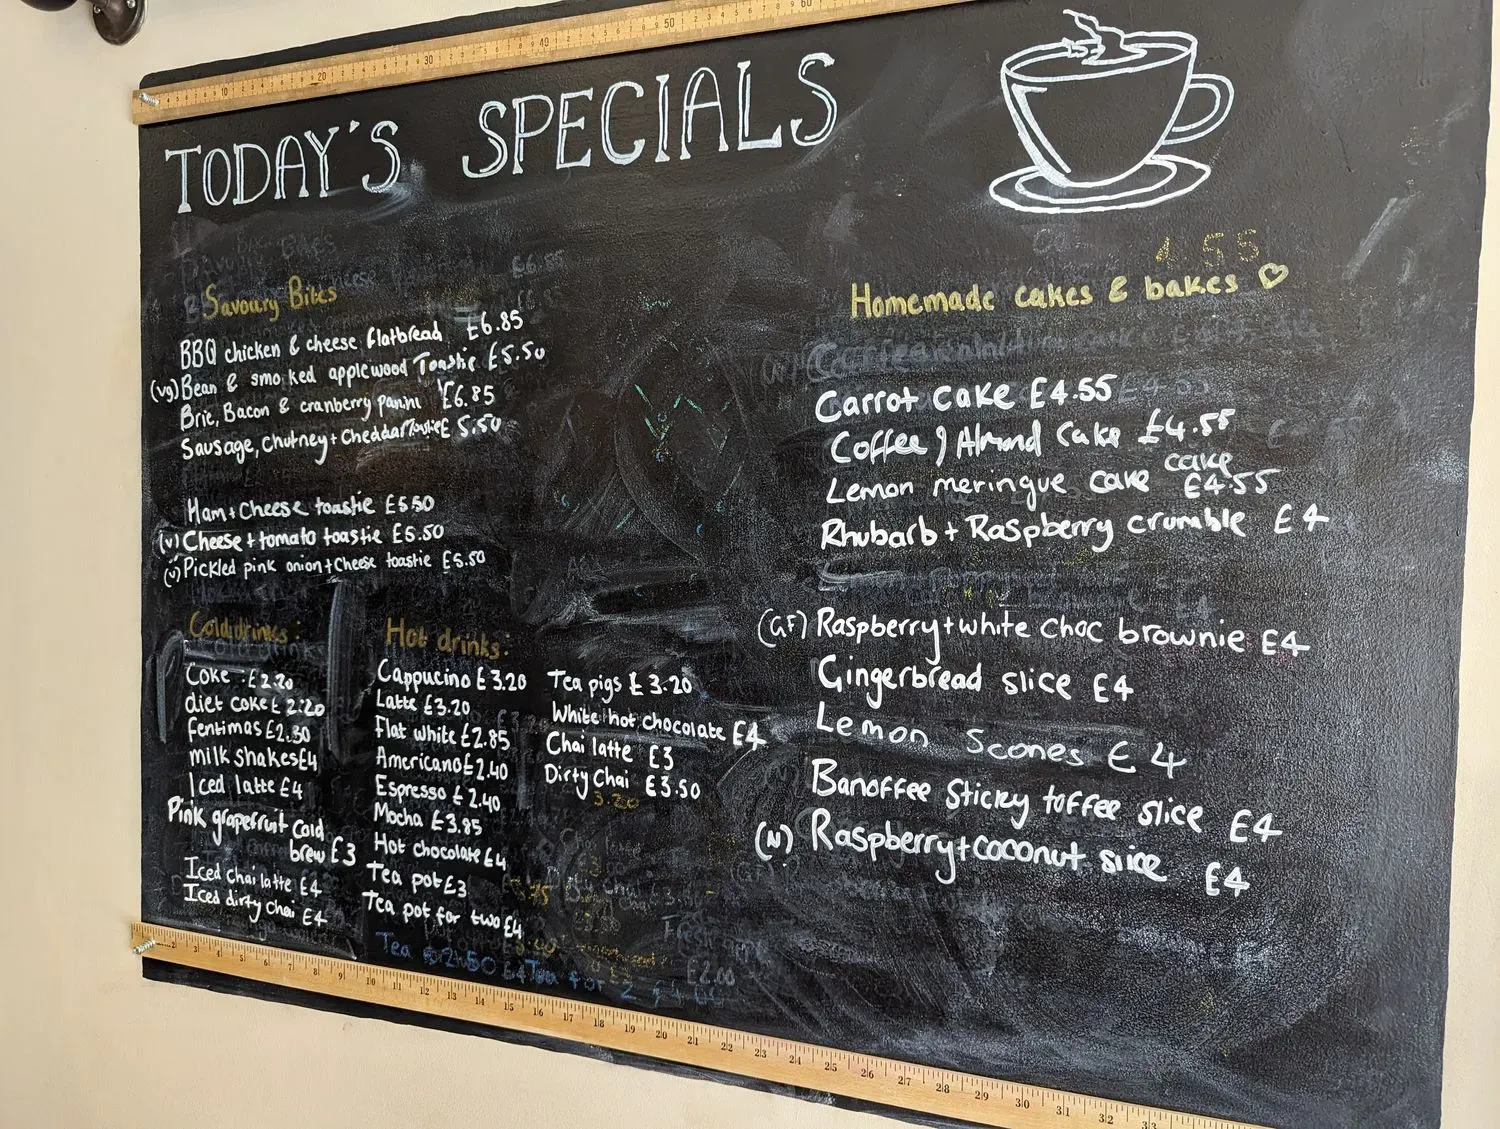 TODAY'S SPECIALS
Savoury Bites
BBQ chicken & cheese flatbread £6.85
(vg) Bean & smoked applewood Toastie £5.50
Brie, Bacon & cranberry panini £6.85
Sausage, chutney + Cheddar Toastie £5.50
Ham + Cheese toastie £5.50
(v) Cheese + tomato toastie £5.50
(v) Pickled pink onion + Cheese toastie £5.50
Cold drinks:
Coke : £2.20
diet coke £2.20
fentimas £2.30
milkshakes £4
Iced latte £4
Pink grapefruit cold
brew £3
Iced chai latte £4
Iced dirty chai £4
Hot drinks:
Cappucino £3.20
Latte £3.20
Flat white £2.85
Americano £2.40
Espresso £2.40
Mocha £3.85
Hot chocolate £4
Tea pot £3
Tea pot for two £4
Tea pigs £3.20
White hot chocolate £4
Chai latte £3
Dirty Chai £3.50
3.20
4.55
Homemade cakes & bakes
Carrot cake £4.55
Coffee / Almond Cake £4.55
cake
Lemon meringue cake £4.55
Rhubarb + Raspberry crumble £4
(GF) Raspberry + white choc brownie £4
Gingerbread slice £4
Lemon Scones £4
Banoffee Sticky toffee slice £4
(N) Raspberry + coconut slice £4